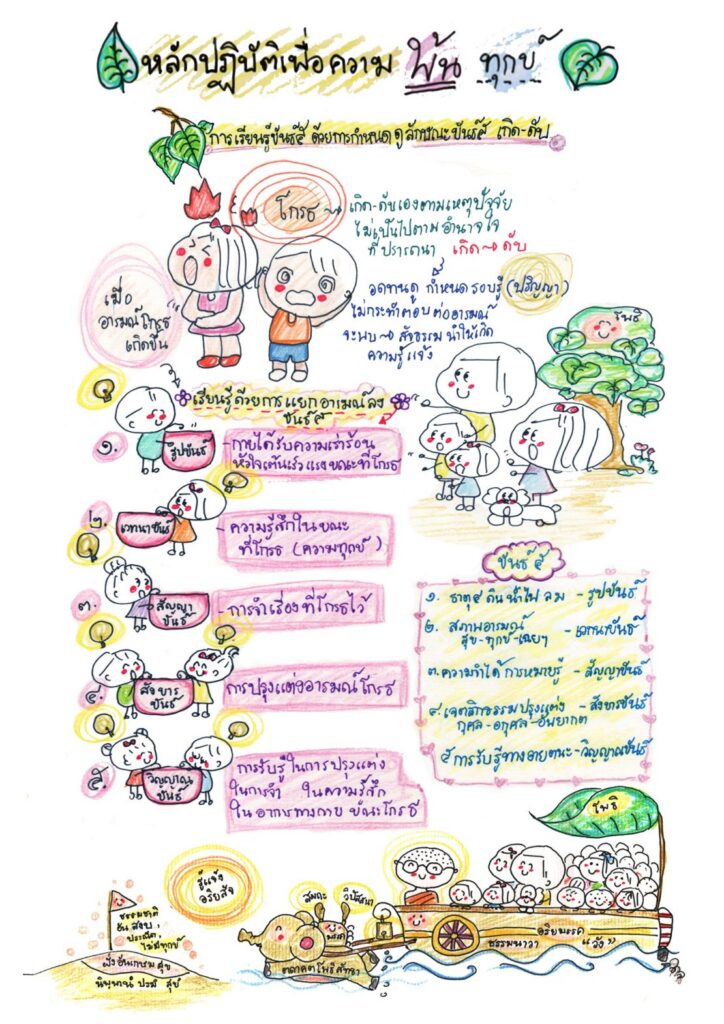 หลักปฏิบัติเพื่อความ พ้น ทุกข์
การเรียนรู้ขันธ์๕ ด้วยการกำหนด ดูลักษณะขันธ์๕ เกิด-ดับ
โกรธ
เกิด-ดับเองตามเหตุปัจจัย
ไม่เป็นไปตามอำนาจใจ
ที่ปรารถนา เกิด → ดับ
เมื่อ
อารมณ์โกรธ
เกิดขึ้น
อดทนดู กำหนดรอบรู้ (ปริญญา)
ไม่กระทำตอบต่ออารมณ์
จะพบ → สัจธรรม นำให้เกิด
ความรู้แจ้ง
โพธิ
เรียนรู้ด้วยการแยกอารมณ์ลง
ขันธ์๕
๑.
รูปขันธ์
- กายได้รับความเร่าร้อน
หัวใจเต้นเร็วแรงขณะที่โกรธ
๒.
เวทนาขันธ์
- ความรู้สึกในขณะ
ที่โกรธ (ความทุกข์)
๓.
สัญญา
ขันธ์
- การจำเรื่องที่โกรธไว้
๔.
สังขาร
ขันธ์
การปรุงแต่งอารมณ์โกรธ
๕.
วิญญาณ
ขันธ์
การรับรู้ในการปรุงแต่ง
ในการจำ ในความรู้สึก
ในอาการทางกาย ขณะโกรธ
ขันธ์ ๕
๑. ธาตุ๔ ดิน น้ำ ไฟ ลม - รูปขันธ์
๒. สภาพอารมณ์
สุข-ทุกข์-เฉยๆ - เวทนาขันธ์
๓. ความจำได้ การหมายรู้ - สัญญาขันธ์
๔. เจตสิกธรรมปรุงแต่ง - สังขารขันธ์
กุศล-อกุศล-อัพยากต
๕ การรับรู้ทางอายตนะ - วิญญาณขันธ์
รู้แจ้ง
อริยสัจ
ธรรมชาติ
อัน สงบ,
ปราณีต,
ไม่มีทุกข์
ฝั่งอันเกษม สุข
นิพพานํ ปรมํ สุขํ
สมถะ
วิปัสสนา
มรรค
ตถาคตโพธิสัทธา
โพธิ
ธรรมนาวา
อริยมรรค
"วัง"